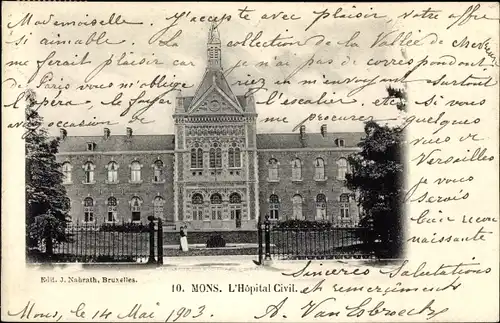 Mademoiselle, J'accepte avec plaisir, votre offre
si aimable. La collection de la Vallée de
me ferait plaisir car pas de correspondant
de Paris vous m'obligeriez en m'envoyant surtout
l'opéra, le foyer, l'escalier, etc
avec occasion. si vous
quelques
vues de
Versailles
je vous
serais
bien re
connaissante
Sincères Salutations
et remerciements
A. Van
Edit. J. Nahrath, Bruxelles.
10. MONS. L'Hôpital Civil.
Mons, le 14 Mai 1903.